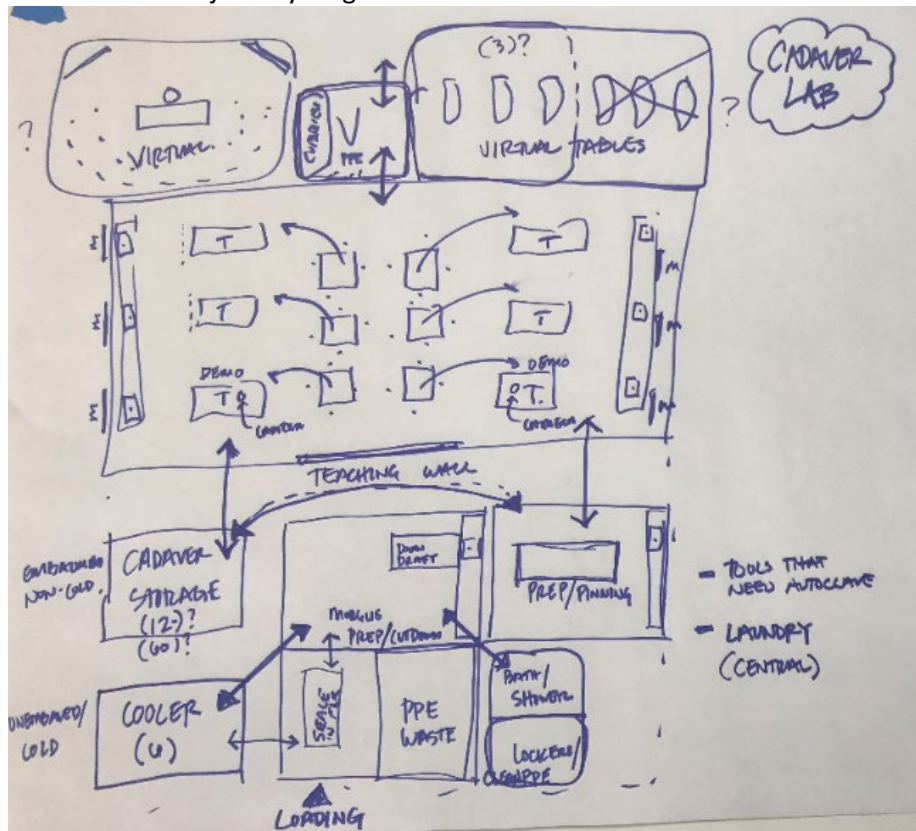 CADAVER
LAB
(3)?
?
VIRTUAL
CUBBIES
PPE
VIRTUAL TABLES
?
M
T
T
M
M
T
T
M
DEMO
DEMO
M
T
T.
M
CAMERA
CAMERA
TEACHING WALL
EMBALMED
NON-COLD.
CADAVER
STORAGE
(12)?
(60)?
DOWN
DRAFT
MORGUE
PREP/CUTDOWN
PREP/PINNING
- TOOLS THAT
NEED AUTOCLAVE
- LAUNDRY
(CENTRAL)
UNEMBALMED/
COLD
COOLER
(6)
PPE
WASTE
BATH/
SHOWER
LOCKERS/
CLEAN PPE
LOADING